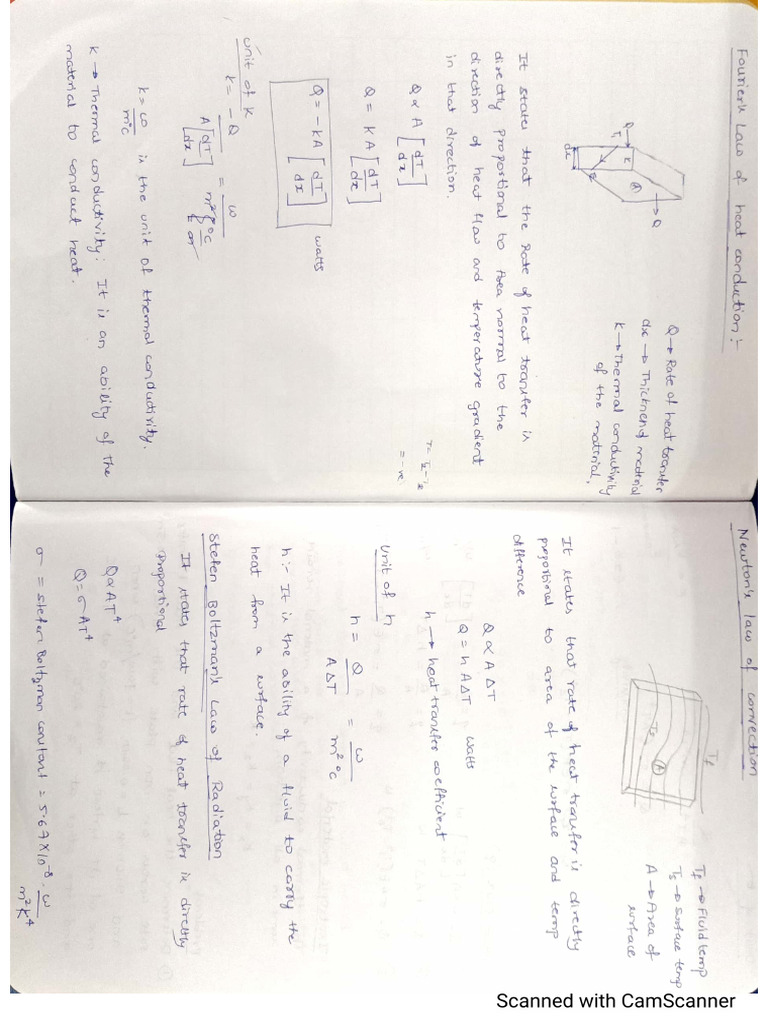 Fourier's Law of heat conduction:-
Q → Rate of heat transfer
dx → Thicknend material
k → Thermal conductivity
of the material.
Q
T1
K
A
Q
dx
It states that the Rate of heat transfer is
directly proportional to Area normal to the
direction of heat flow and temperature gradient
in that direction.
Q ∝ A [dT/dx]
T = T2 - T1
= -ve
Q = KA [dT/dx]
Q = -KA [dT/dx] watts
Unit of k
k = -Q / A[dT/dx] = w / m² °C/m
k = ω/m°c is the unit of thermal conductivity.
k → Thermal conductivity: It is an ability of the
material to conduct heat.
Newton's law of convection
Tf
Ts
A
Tf → Fluid temp
Ts → surface temp
A → Area of
surface
It states that rate of heat transfer is directly
propotional to area of the surface and temp
difference
Q ∝ A ΔT
Q = h A ΔT watts
h → heat transfer coefficient
Unit of h
h = Q / AΔT = ω / m² °C
h:- It is the ability of a fluid to carry the
heat from a surface.
Stefen Boltzman's Law of Radiation
It states that rate of heat transfer is directly
Proportional
Q ∝ AT⁴
Q = σ AT⁴
σ = stefen Boltzman constant = 5.67 × 10⁻⁸ ω/m²K⁴
Scanned with CamScanner